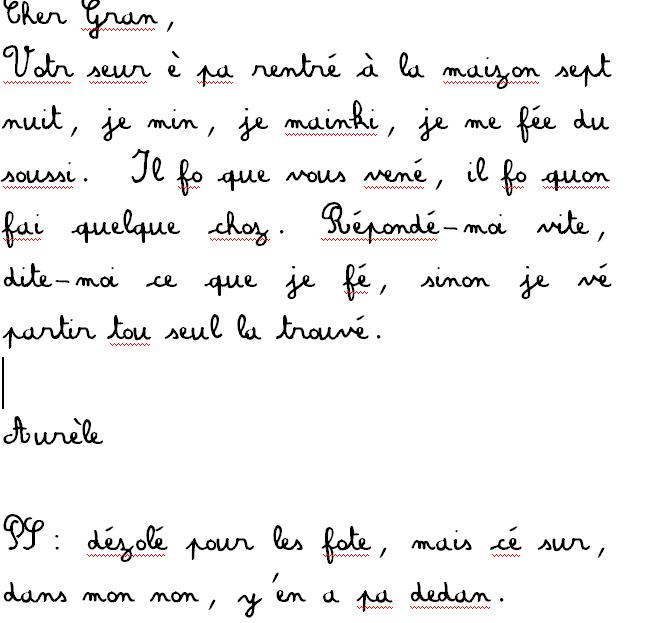 Cher Gran,
Votr seur è pa rentré à la maizon sept
nuit, je min, je mainki, je me fée du
soussi. Il fo que vous vené, il fo quon
fai quelque choz. Répondé-moi vite,
dite-moi ce que je fé, sinon je vé
partir tou seul la trouvé.
Aurèle
PS : dézolé pour les fote, mais cé sur,
dans mon non, y'en a pa dedan.